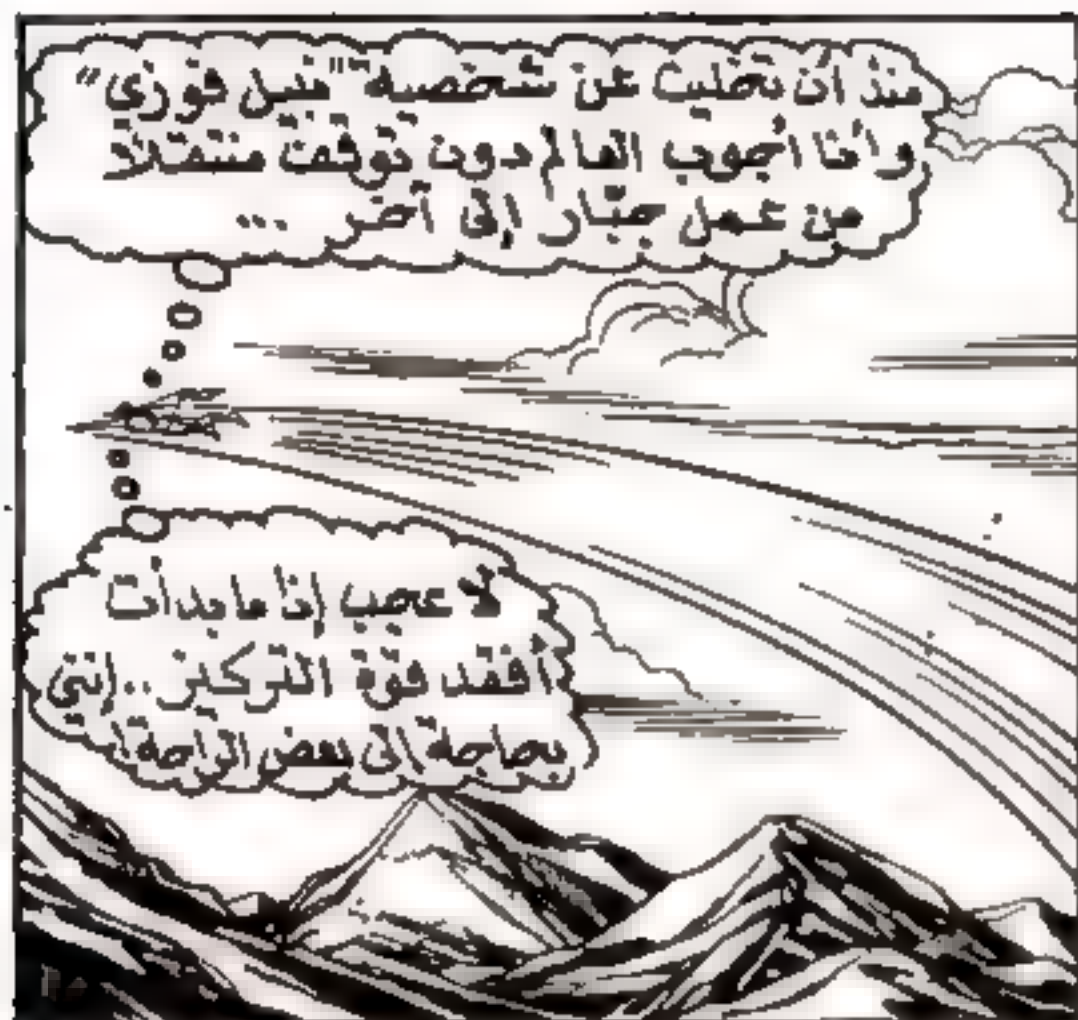 منذ أن تخليت عن شخصية "نبيل فوزي"
وأنا أجوب العالم دون توقف منتقلاً
من عمل جبّار إلى آخر ...
لا عجب إذا ما بدأت
أفقد قوّة التركيز.. إنني
بحاجة إلى بعض الراحة!